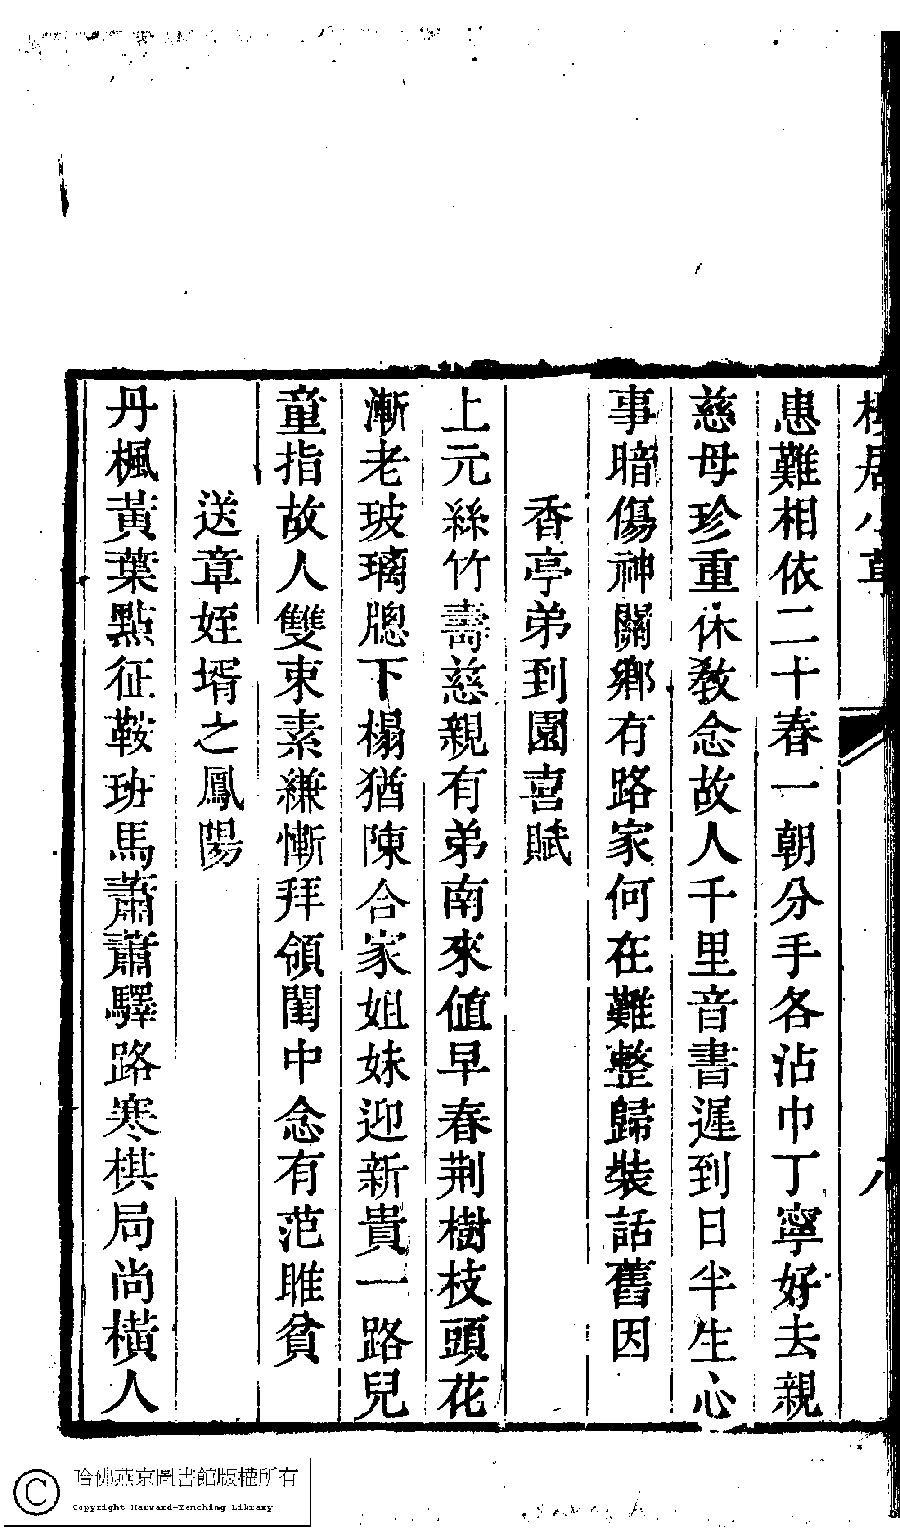 樓居小草
八
患難相依二十春一朝分手各沾巾丁寧好去親
慈母珍重休教念故人千里音書遲到日半生心
事暗傷神關鄉有路家何在難整歸裝話舊因
香亭弟到園喜賦
上元絲竹壽慈親有弟南來值早春荆樹枝頭花
漸老玻璃牕下榻猶陳合家姐妹迎新貴一路兒
童指故人雙束素縑慚拜領閨中念有范雎貧
送章姪壻之鳳陽
丹楓黃葉點征鞍班馬蕭蕭驛路寒棋局尚橫人
哈佛燕京圖書館版權所有
Copyright Harvard-Yenching Library